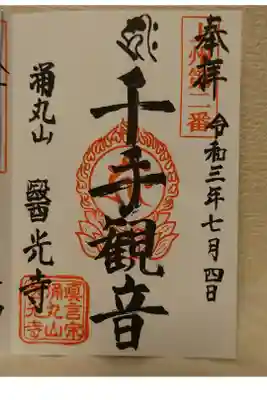 奉拝
令和三年七月四日
千手観音
涌丸山
醫光寺
真言宗
涌丸山
醫光寺